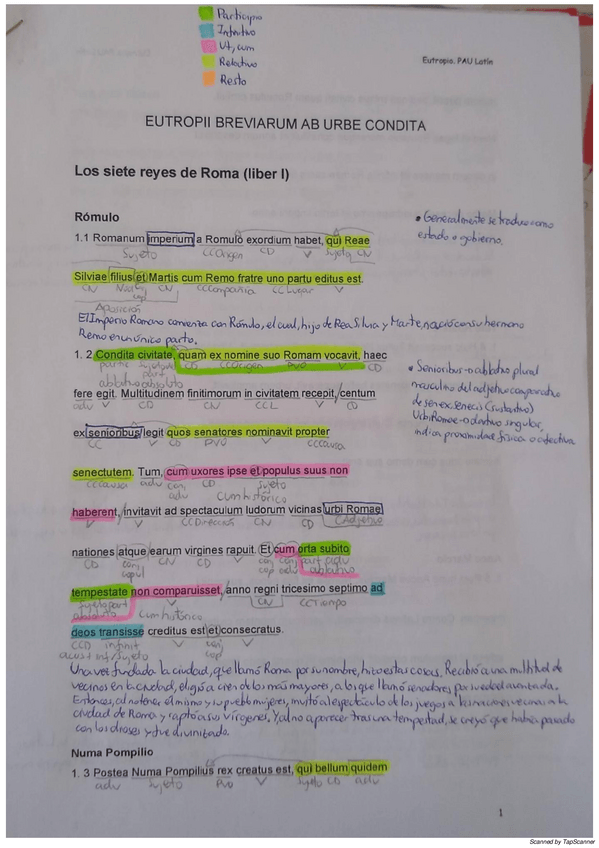 Participio
Infinitivo
Ut, cum
Relativo
Resto
Eutropio. PAU Latín
EUTROPII BREVIARUM AB URBE CONDITA
Los siete reyes de Roma (liber I)
Rómulo
• Generalmente se traduce como
estado o gobierno.
1.1 Romanum imperium a Romulo exordium habet, qui Reae
Sujeto CC Origen CD V Sujeto CN
Silviae filius et Martis cum Remo fratre uno partu editus est.
CN CN CCCompañía CC Lugar V
Aposición
El Imperio Romano comienza con Rómulo, el cual, hijo de Rea Silvia y Marte, nació con su hermano
Remo en un único parto.
1. 2 Condita civitate, quam ex nomine suo Romam vocavit, haec
CCOrigen PVO V CD
ablativo absoluto
fere egit. Multitudinem finitimorum in civitatem recepit, centum
adv V CD CN CCL V CD
• Senioribus- o ablativo plural
masculino del adjetivo comparativo
de senex senecis (sustantivo)
Urbi Romae- o dativo singular,
indica proximidad física o adjetiva
ex senioribus legit quos senatores nominavit propter
CC V CD PVO V CCCausa
senectutem. Tum, cum uxores ipse et populus suus non
CCCausa adv conj CD Sujeto
adv cum histórico
haberent, invitavit ad spectaculum ludorum vicinas urbi Romae
V V CCDirección CN CD CAdjetivo
nationes atque earum virgines rapuit. Et cum orta subito
CD conj CN CD V conj conj part adv
copul cop adv ablativo
tempestate non comparuisset, anno regni tricesimo septimo ad
sujeto part V CN CCTiempo
absoluto cum histórico
deos transisse creditus est et consecratus.
CCD infinit V conj
sujeto cop
Una vez fundada la ciudad, que llamó Roma por su nombre, hizo estas cosas. Recibió a una multitud de
vecinos en la ciudad, eligió a cien de los más mayores, a los que llamó senadores por su edad avanzada.
Entonces, al no tener él mismo y su pueblo mujeres, invitó al espectáculo de los juegos a las naciones vecinas a la
ciudad de Roma y raptó a sus vírgenes. Y al no aparecer tras una tempestad, se creyó que había pasado
con los dioses y fue divinizado.
Numa Pompilio
1. 3 Postea Numa Pompilius rex creatus est, qui bellum quidem
adv Sujeto PVO V Sujeto CD adv
1
Scanned by TapScanner